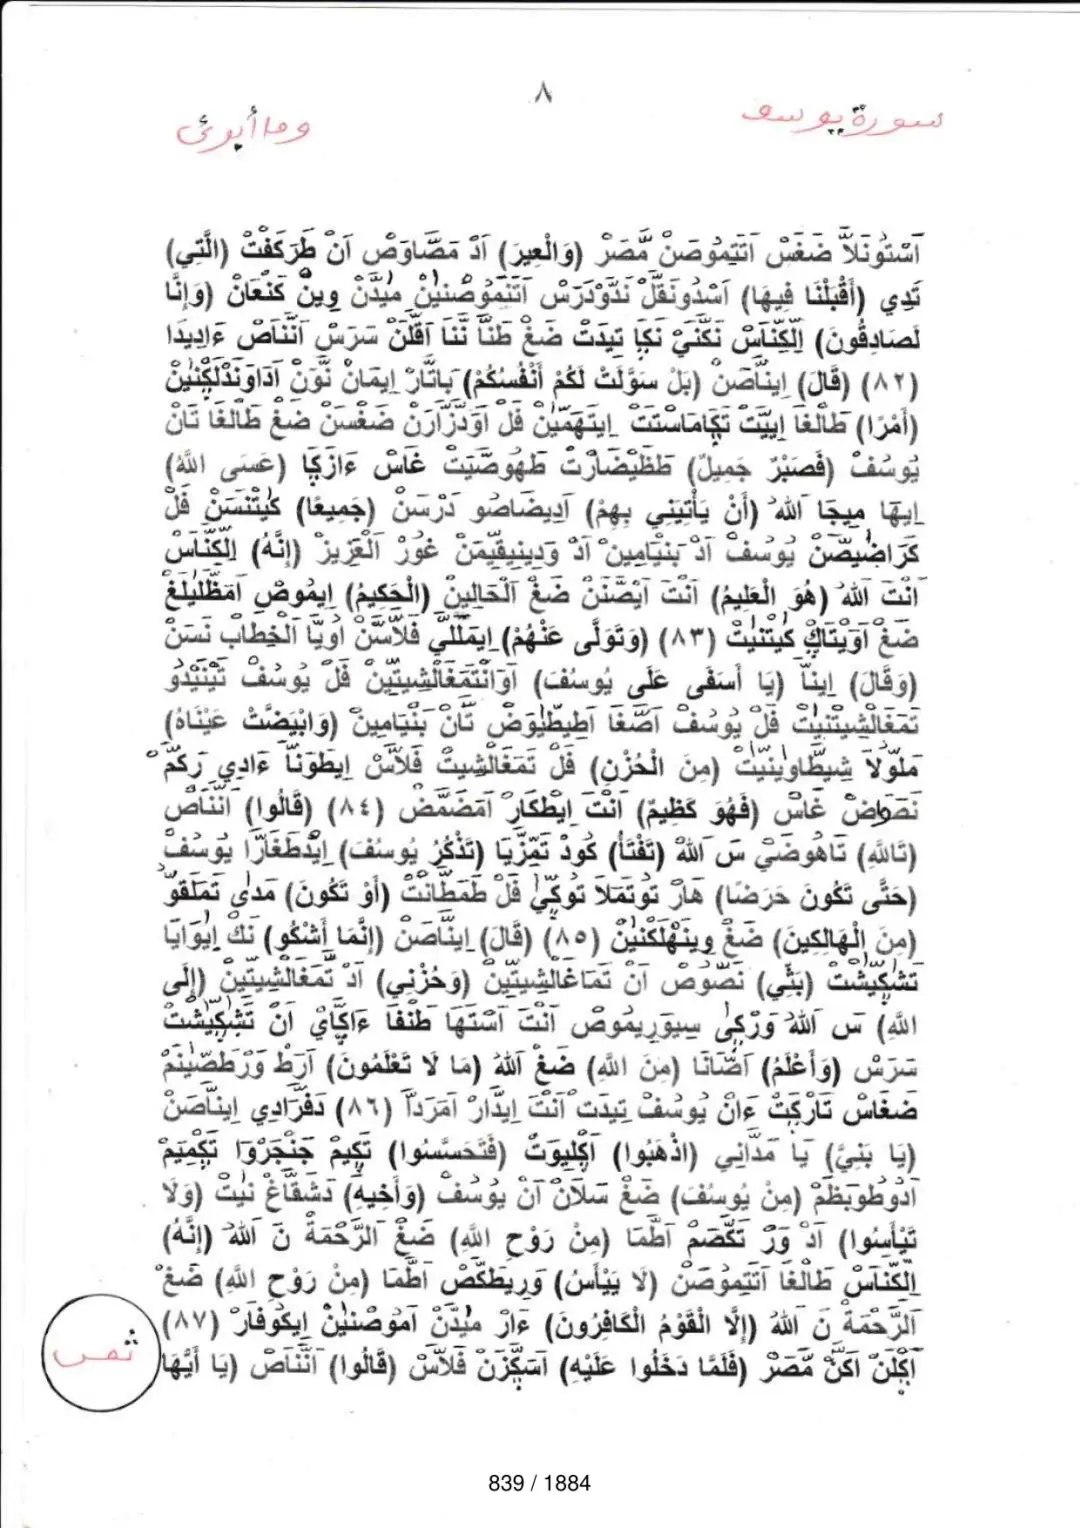 ٨
سورة يوسف
وما أبرئ
اَسْتُونَلاَّ ضَغَسْ اَتَتِمُوصَنْ مَّصَرْ (وَالْعِيرَ) اَدْ مَصَّاوَصْ اَنْ طَرَكَفْتْ (الَّتِي)
تَدِي (أَقْبَلْنَا فِيهَا) اَسْدُونَقَلْ نَدَّوْدَرَسْ اَتَنَمُوصْنَيْنْ مَيْدَّنْ وِينْ كَنْعَانْ (وَإِنَّا
لَصَادِقُونَ) اِلَكِنَّاسْ نَكَنَيْ نَكَا تِيدَتْ ضَغْ طَنَّا نَّنَا اَقْلَنْ سَرَسْ اَنَّنَاصْ ءَادِيدَا
(٨٢) (قَالَ) اِينَّاصَنْ (بَلْ سَوَّلَتْ لَكُمْ أَنْفُسُكُمْ) بَاتَّارْ اِيمَانْ نَّوَنْ اَدَاوَنْدَلَكِنْيَنْ
(أَمْرًا) طَالْغَا اِيِيَّتْ تَكَامَاسْتَتْ اِيتَهَمَّيْنْ فَلْ اَوَدَّرَّارَنْ ضَغْسَنْ ضَغْ طَالْغَا تَانْ
يُوسُفْ (فَصَبْرٌ جَمِيلٌ) طَظَيْضَارْتْ طَهُوصَّيَتْ غَاسْ ءَازَكَا (عَسَى اللَّهُ)
اِيهَا مِيجَا اَللهُ (أَنْ يَأْتِيَنِي بِهِمْ) اَدِيضَاصُو دَرْسَنْ (جَمِيعًا) كَيْتَنْسَنْ فَلْ
كَرَاضَيصَّنْ يُوسُفْ اَدْ بَنْيَامِينْ اَدْ وَدِينِيقِيمَنْ غُورْ اَلْعَزِيزْ (إِنَّهُ) اِلَكِنَّاسْ
اَنْتَ اَللهُ (هُوَ الْعَلِيمُ) اَنْتَ اَيْصَّنَنْ ضَغْ اَلْحَالِينْ (الْحَكِيمُ) اِيمُوصْ اَمَظَّلَيْلَغْ
ضَغْ اَوِيتَاكْ كَيْتَنَيْتْ (٨٣) (وَتَوَلَّى عَنْهُمْ) اِيمَلَلَّيْ فَلاَّسَّنْ اُويَّا اَلْخِطَابْ نَسَنْ
(وَقَالَ) اِينَّا (يَا أَسَفَى عَلَى يُوسُفَ) اَوَانَتَمَغَالْشِيتِّينْ فَلْ يُوسُفْ تَيْنَيْدُو
تَمَغَالْشِيتْنَيْتْ فَلْ يُوسُفْ اَصَّغَا اَطِيطَّيْوَضْ تَّانْ بَنْيَامِينْ (وَابْيَضَّتْ عَيْنَاهُ)
مَلَّوْلاَ شِيطَّاوِينَيْتْ (مِنَ الْحُزْنِ) فَلْ تَمَغَالْشِيتْ فَلاَّسْ اِيطَوَنَّا ءَادِي رَكَّمْ
نَصَوَاضْ غَاسْ (فَهُوَ كَظِيمٌ) اَنْتَ اِيطْكَارْ اَمْضَمَّضْ (٨٤) (قَالُوا) اَنَّنَاصْ
(تَاللَّهِ) تَاهُوضَيْ سَ اَللهُ (تَفْتَأُ) كُودْ تَمِّزَّيَا (تَذْكُرُ يُوسُفَ) اِيْدَطَغَارَّا يُوسُفْ
(حَتَّى تَكُونَ حَرَضًا) هَارْ تُوتَمَلاَ تُوكَيْ فَلْ طَمَطَّانْتْ (أَوْ تَكُونَ) مَدَى تَمَلَقَوْ
(مِنَ الْهَالِكِينَ) ضَغْ وِينَهْلَكْنَيْنْ (٨٥) (قَالَ) اِينَّاصَنْ (إِنَّمَا أَشْكُو) نَكْ اِيوَايَا
تَشَكَيْشْتْ (بَثِّي) نَصَّوْصْ اَنْ تَمَاغَالْشِيتِّينْ (وَحُزْنِي) اَدْ تَّمَغَالْشِيتِّينْ (إِلَى
اللَّهِ) سَ اَللهُ وَرْكَى سِيوَرِيمُوصْ اَنْتَ اَسَّتَهَا طَنْفَا ءَاكَايْ اَنْ تَشَكَيْشْتْ
سَرَسْ (وَأَعْلَمُ) اَصَّانَا (مِنَ اللَّهِ) ضَغْ اَللهُ (مَا لَا تَعْلَمُونَ) اَرَطْ وَرْطَصَّيْنَمْ
ضَغَاسْ تَارَكَتْ ءَانْ يُوسُفْ تِيدَتْ اَنْتَ اِيدَّارْ اَمَرَدَا (٨٦) دَفَرَّادِي اِينَّاصَنْ
(يَا بَنِيَّ) يَا مَدَّانِي (اذْهَبُوا) اَكْلَيِوَتْ (فَتَحَسَّسُوا) تَكِيمْ جَنْجَرْوَا تَكْمِيَمْ
اَدُوطُوبَظَمْ (مِنْ يُوسُفَ) ضَغْ سَلاَنْ اَنْ يُوسُفْ (وَأَخِيهِ) دَشَقَّاغْ نَيْتْ (وَلَا
تَيْأَسُوا) اَدْ وَرْ تَكَّضَمْ اَطَّمَا (مِنْ رَوْحِ اللَّهِ) ضَغْ اَلرَّحْمَةْ نَ اَللهُ (إِنَّهُ)
اِلَكِنَّاسْ طَالْغَا اَتَتِمُوصَنْ (لَا يَيْأَسُ) وَرِيطَكَّضْ اَطَّمَا (مِنْ رَوْحِ اللَّهِ) ضَغْ
اَلرَّحْمَةْ نَ اَللهُ (إِلَّا الْقَوْمُ الْكَافِرُونَ) ءَارْ مَيْدَّنْ اَمُوصْنَيْنْ اِيكُوفَارْ (٨٧)
اَكْلَنْ اَكَنْ مَّصَرْ (فَلَمَّا دَخَلُوا عَلَيْهِ) اَسَكَزَنْ فَلاَّسْ (قَالُوا) اَنَّنَاصْ (يَا أَيُّهَا
ثمن
839 / 1884